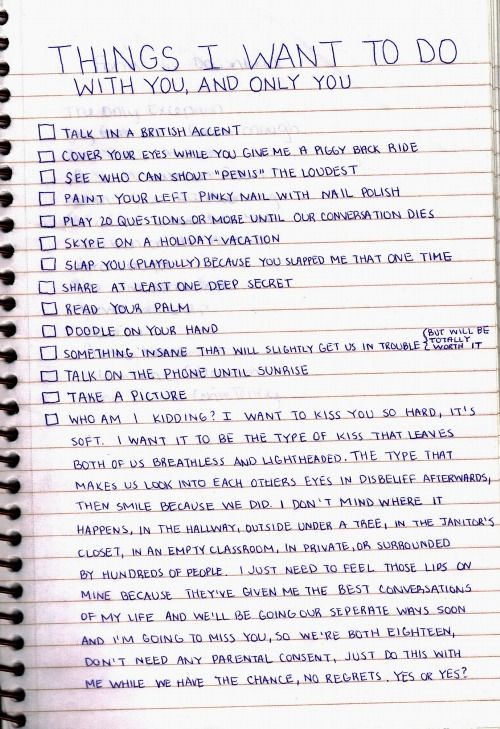 THINGS I WANT TO DO
WITH YOU, AND ONLY YOU
TALK IN A BRITISH ACCENT
COVER YOUR EYES WHILE YOU GIVE ME A PIGGY BACK RIDE
SEE WHO CAN SHOUT "PENIS" THE LOUDEST
PAINT YOUR LEFT PINKY NAIL WITH NAIL POLISH
PLAY 20 QUESTIONS OR MORE UNTIL OUR CONVERSATION DIES
SKYPE ON A HOLIDAY-VACATION
SLAP YOU (PLAYFULLY) BECAUSE YOU SLAPPED ME THAT ONE TIME
SHARE AT LEAST ONE DEEP SECRET
READ YOUR PALM
DOODLE ON YOUR HAND
SOMETHING INSANE THAT WILL SLIGHTLY GET US IN TROUBLE
(BUT WILL BE
TOTALLY
WORTH IT
TALK ON THE PHONE UNTIL SUNRISE
TAKE A PICTURE
WHO AM I KIDDING? I WANT TO KISS YOU SO HARD, IT'S
SOFT. I WANT IT TO BE THE TYPE OF KISS THAT LEAVES
BOTH OF US BREATHLESS AND LIGHTHEADED. THE TYPE THAT
MAKES US LOOK INTO EACH OTHERS EYES IN DISBELIEF AFTERWARDS,
THEN SMILE BECAUSE WE DID. I DON'T MIND WHERE IT
HAPPENS, IN THE HALLWAY, OUTSIDE UNDER A TREE, IN THE JANITOR'S
CLOSET, IN AN EMPTY CLASSROOM, IN PRIVATE, OR SURROUNDED
BY HUNDREDS OF PEOPLE. I JUST NEED TO FEEL THOSE LIPS ON
MINE BECAUSE THEY'VE GIVEN ME THE BEST CONVERSATIONS
OF MY LIFE AND WE'LL BE GOING OUR SEPERATE WAYS SOON
AND I'M GOING TO MISS YOU, SO WE'RE BOTH EIGHTEEN,
DON'T NEED ANY PARENTAL CONSENT, JUST DO THIS WITH
ME WHILE WE HAVE THE CHANCE, NO REGRETS. YES OR YES?